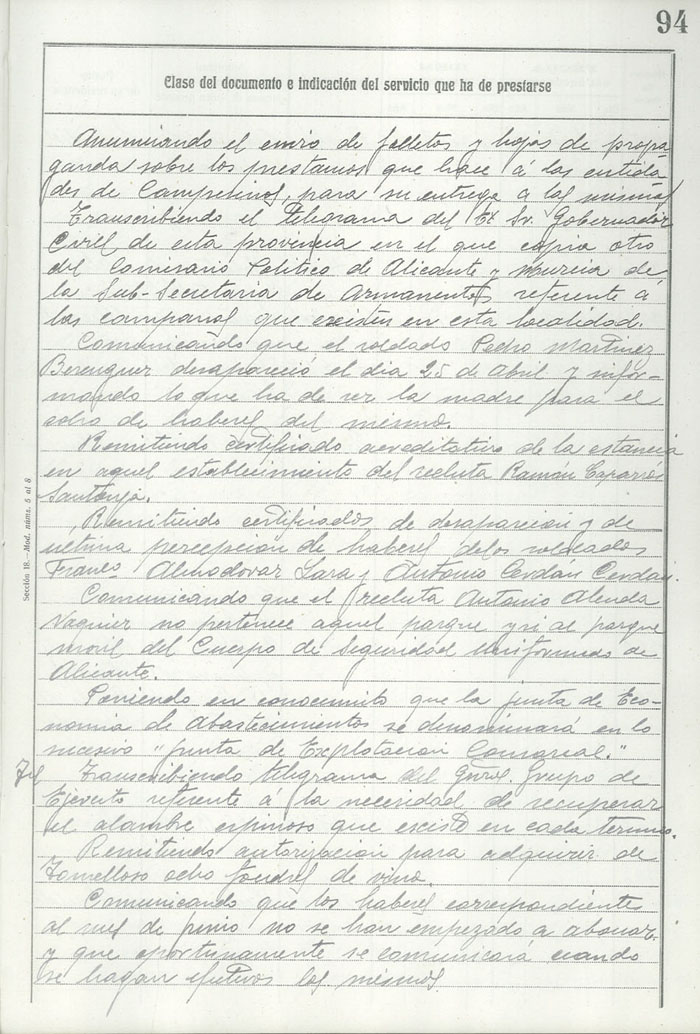 94
Clase del documento e indicación del servicio que ha de prestarse
Anunciando el envio de folletos y hojas de propa-
ganda sobre los prestamos que hace á las entida-
des de Campesinos, para su entrega a las mismas
Transcribiendo el telegrama del Ex Sr. Gobernador
Civil de esta provincia en el que copia otro
del Comisario Politico de Alicante y Murcia de
la Sub-Secretaria de Armamentos referente á
las campanas que existen en esta localidad.
Comunicando que el soldado Pedro Martinez
Berenguer desapareció el dia 25 de Abril y infor-
mando lo que ha de ser la madre para el
cobro de haberes del mismo.
Remitiendo certificado acreditativo de la estancia
en aquel establecimiento del recluta Ramón Caparrós
Santonja.
Remitiendo certificados de desaparicion y de
ultima percepcion de haberes delos soldados
Franco Almodovar Lara y Antonio Cerdán Cerdán.
Comunicando que el recluta Antonio Alenda
Vaquier no pertenece aquel parque y si al parque
movil del Cuerpo de Seguridad Uniformado de
Alicante.
Poniendo en conocimito que la junta de Eco-
nomia de Abastecimientos se denominará en lo
sucesivo "Junta de Explotacion Comarcal."
Transcribiendo telegrama del Gnral. Grupo de
Ejercito referente á la necesidad de recuperar
el alambre espinoso que existe en cada termino.
Remitiendo autorizacion para adquirir de
Tomelloso ocho foudres de vino.
Comunicando que los haberes correspondiente
al mes de junio no se han empezado a abonar
y que oportunamente se comunicará cuando
se hagan efectivos los mismos.
Sección 18.—Mod. núms. 5 al 8